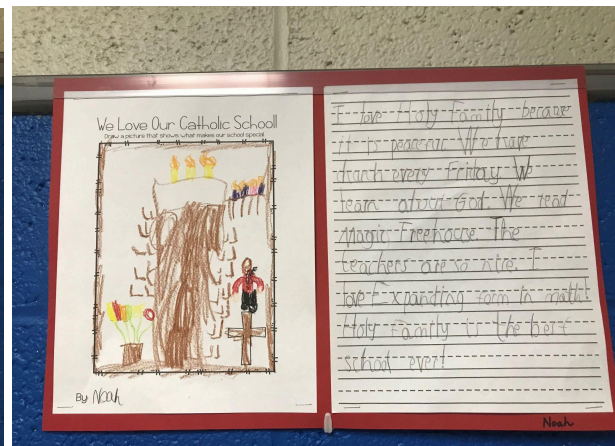 We Love Our Catholic School!
Draw a picture that shows what makes our school special
By Noah
I love Holy Family because
it is peaceful. We have
church every Friday. We
learn about God. We read
Magic Treehouse. The
teachers are so nice. I
love Expanding form in math!
Holy Family is the best
school ever!
Noah